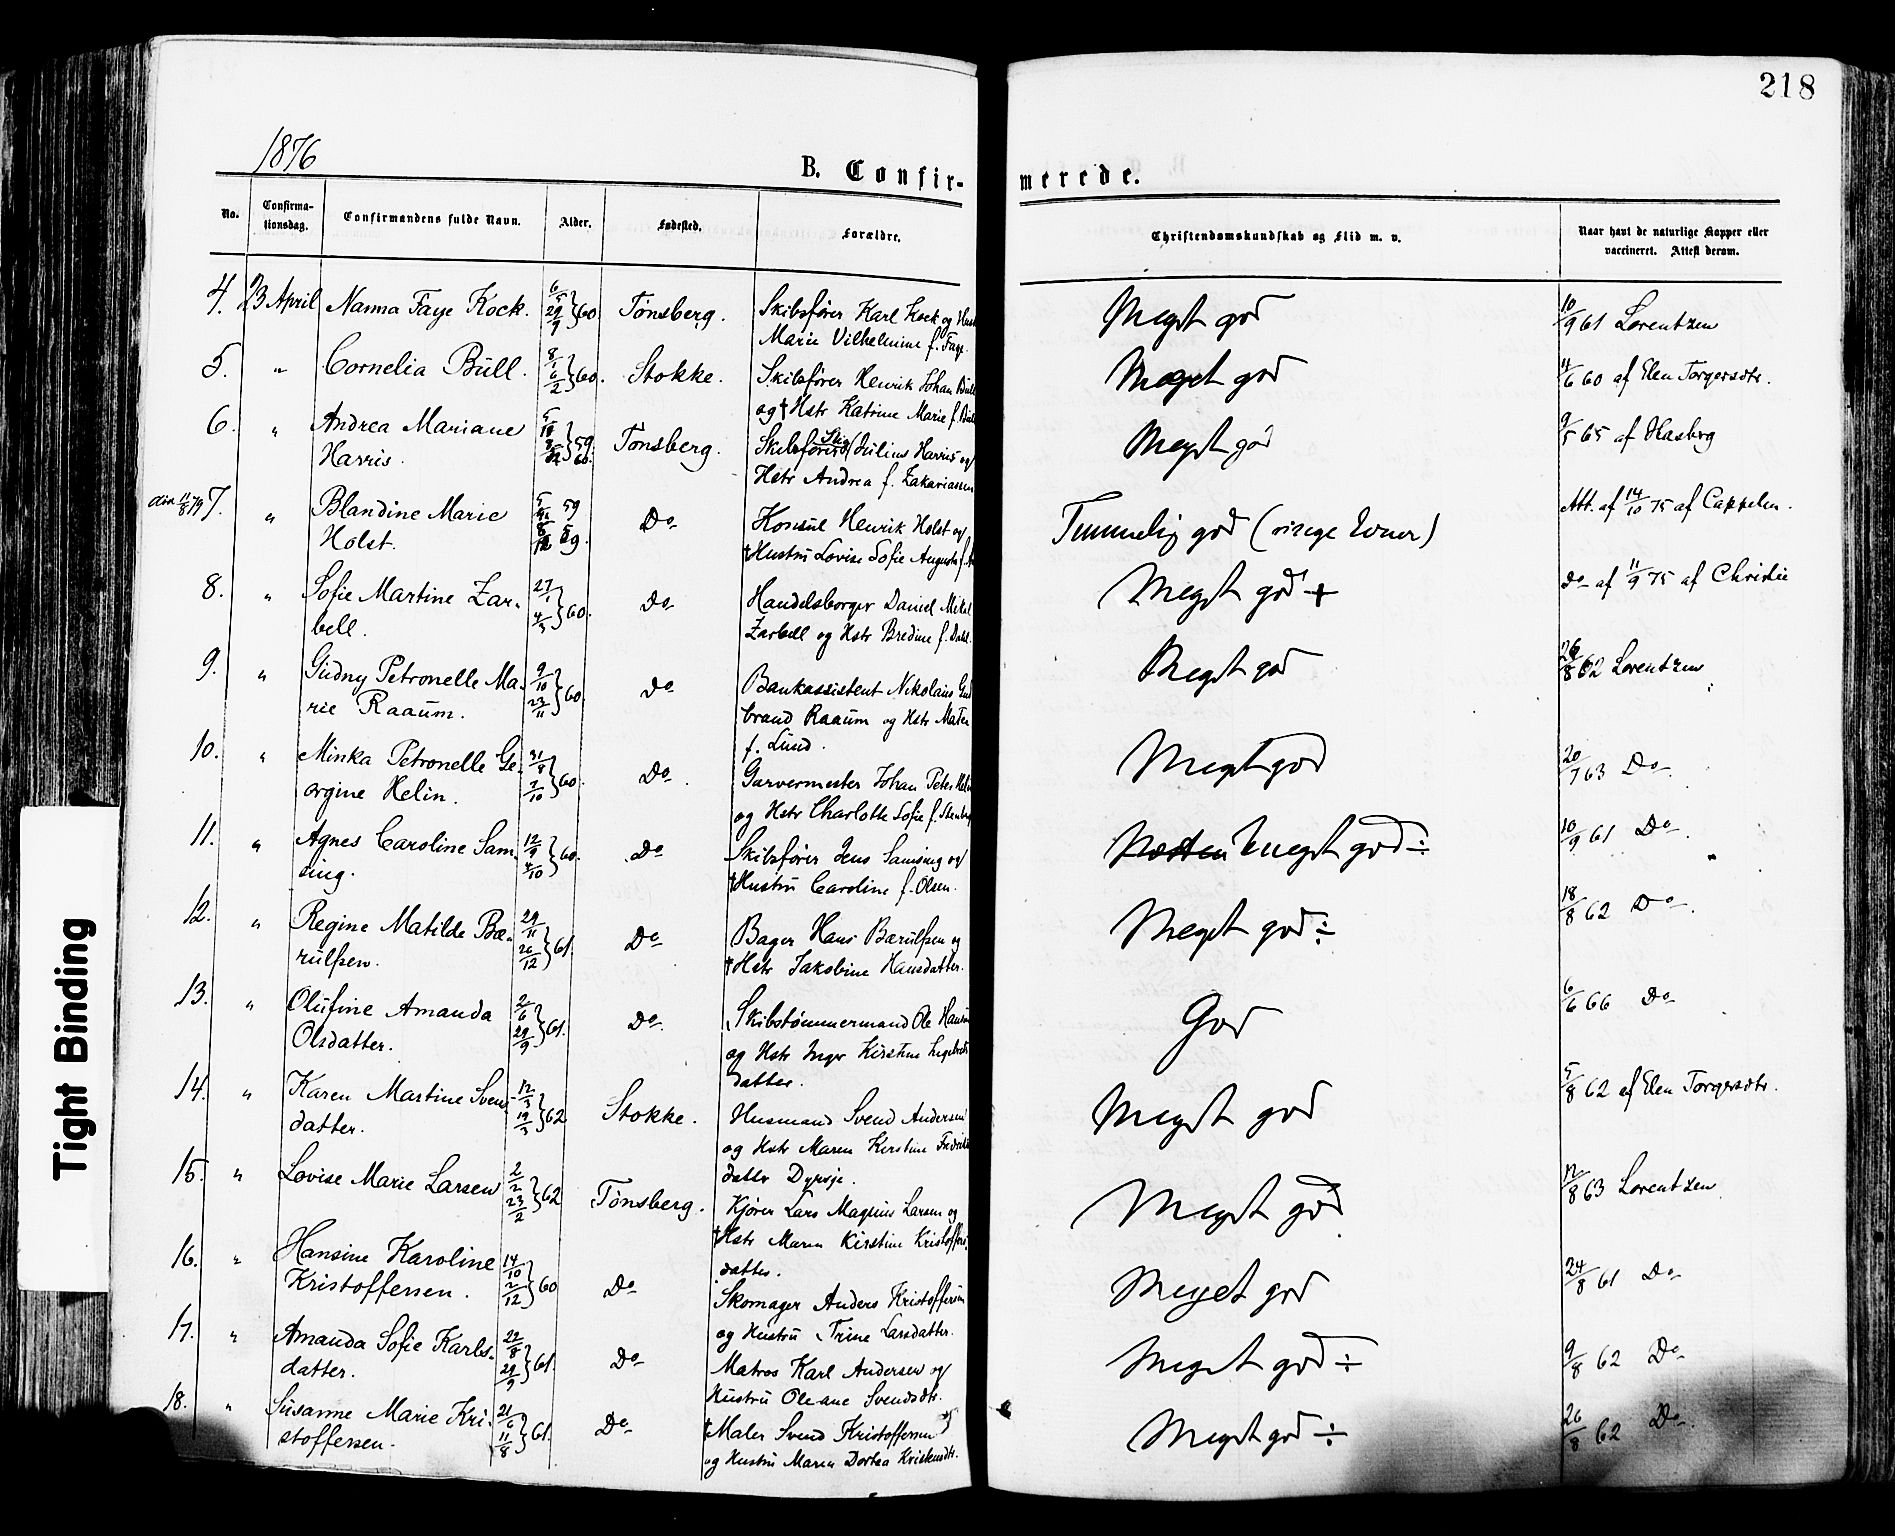 218
1876
B. Confir-
merede.
No.
Confirma-
tionsdag.
Confirmandens fulde Navn.
Alder.
Fødested.
Forældre.
Christendomskundskab og Flid m. v.
Naar havt de naturlige Kopper eller
vaccineret. Attest derom.
4. 23 April Nanna Faye Kock. 6/5 29/9 } 60 Tønsberg. Skibsfører Karl Kock og
Marie Vilhelmine f. Faye.
Meget god
10/9 61 Lorentzen
5. " Cornelia Büll. 8/1 6/2 } 60. Stokke. Skibsfører Henrik Johan Büll
og † Hstr Katrine Marie f.
Meget god
11/6 60 af Elen Torgersdtr.
6. " Andrea Mariane Tønsberg. Skibsfører Julius Harris og
Harris. Hstr Andrea f. Zakariassen
Meget god
9/5 65 af Hasberg
7. " Blandine Marie Do Konsul Henrik Holst og
Holst. † Hustru Lovise Sofie Augusta f.
Temmelig god (ringe Evner)
Att. af 14/10 75 af Cappelen.
8. " Sofie Martine Zar- 27/1 4/3 } 60. Do Handelsborger Daniel Mikal
bell. Zarbell og Hstr Bredine f. Dahl.
Meget god +
Do af 11/9 75 af Christie
9. " Gudny Petronelle Ma- 9/10 23/11 } 60. Do Bankassistent Nikolaus Gud
rie Raaum. brand Raaum og Hstr Maren
f. Lund.
Meget god
26/8 62 Lorentzen
10. " Minka Petronelle Ge- 31/8 7/10 } 60. Do. Garvermester Johan Peter Helin
orgine Helin. og Hstr Charlotte Sofie f.
Meget god
20/7 63 Do
11. " Agnes Caroline Sam- 12/9 4/10 } 60. Do Skibsfører Jens Samsing og
sing. † Hustru Caroline f. Olsen.
Næsten meget god ÷
10/9 61 Do.
12. " Regine Matilde Bæ- 29/11 26/12 } 61. Do Bager Hans Bærulfsen og
rulfsen. † Hstr Jakobine Hansdatter.
Meget god ÷
18/8 62 Do.
13. " Olufine Amanda 2/6 29/9 } 61. Do. Skibstømmermand Ole Hansen
Olsdatter. og Hstr Inger Kirstine
datter.
God
6/6 66 Do
14. " Karen Martine Svends- 12/3 19/3 } 62 Stokke. Husmand Svend Andersen
datter. og Hstr Maren Kirstine Fredriks
datter Dyrsje.
Meget god
5/8 62 af Elen Torgersdtr.
15. " Lovise Marie Larsen 2/2 23/2 } 62 Tønsberg. Kjører Lars Magnus Larsen og
† Hstr Maren Kirstine Kristoffers
datter.
Meget god
12/8 63 Lorentzen
16. " Hansine Karoline 14/10 2/12 } 60 Do Skomager Anders Kristoffersen
Kristoffersen. og Hustru Trine Larsdatter.
Meget god
24/8 61 Do
17. " Amanda Sofie Karls- 22/8 29/9 } 61. Do Matros Karl Andersen og
datter. Hustru Oleane Svendsdtr.
Meget god ÷
9/8 62 Do
18. " Susanne Marie Kri- 21/6 11/8 } 61. Do † Maler Svend Kristoffersen
stoffersen. og Hustru Maren Dortea
Meget god ÷
26/8 62 Do.
Tight Binding